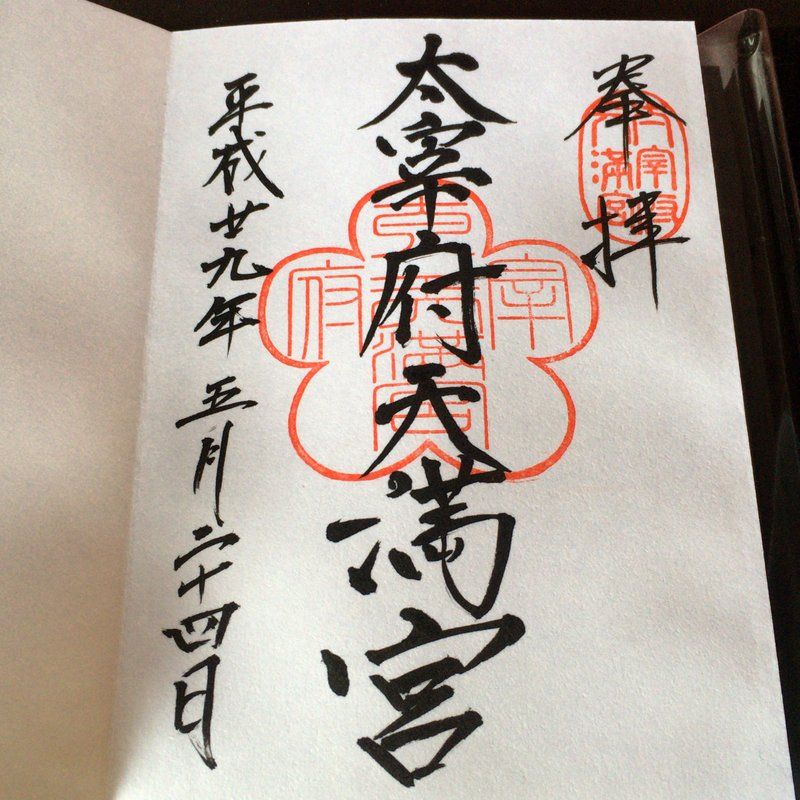 奉拝
太宰府天満宮
平成廿九年五月二十四日